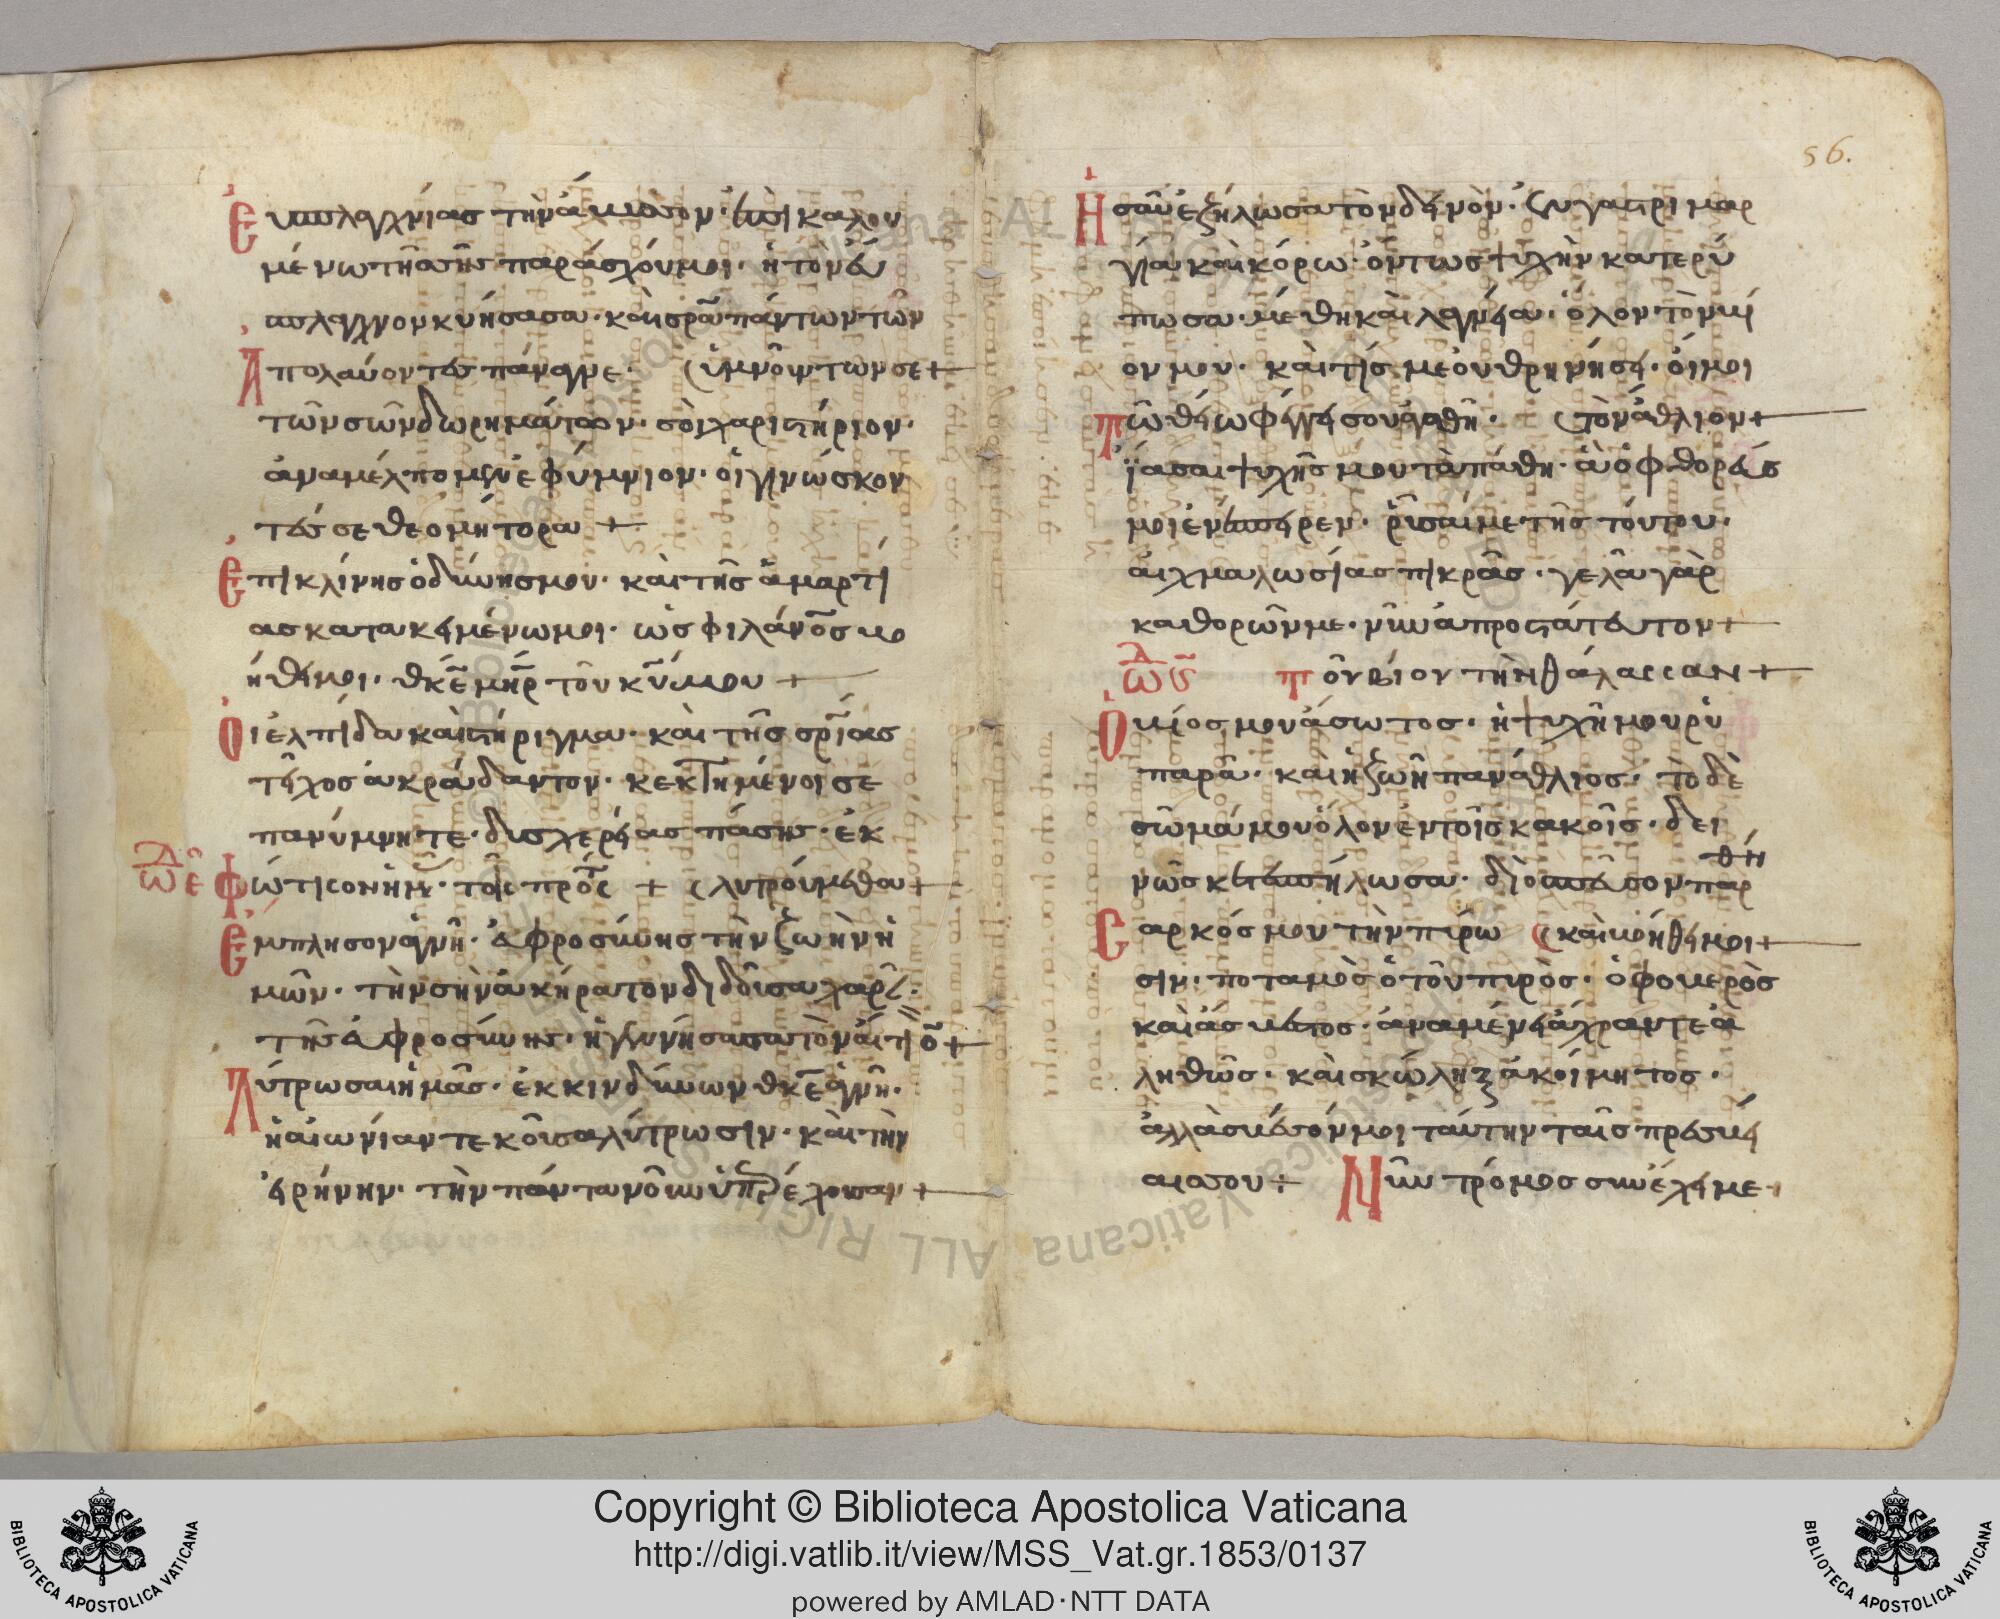 Εὐσπλαγχνίας τὴν ἄβυσσον· ἐπικαλου
μένω τῆς σῆς παράσχου μοι· ἡ τὸν εὔ
σπλαγχνον κυήσασα· καὶ σρᾱ πάντων τῶν
Ἀπολαύοντες πάναγνε· ὑμνούντων σε+
τῶν σῶν δωρημάτων· σοὶ χαριστήριον·
ἀναμέλπομεν ἐφύμνιον· οἱ γινώσκον
τές σε θεομήτορα +
Ἐπικλίνης ὀδύνης μου· καὶ τῆς ἁμαρτί
ας κατακειμένω μοι· ὡς φιλάνο̄ς βο
ήθει μοι· θκ̄ε μη̄ρ τοῦ κῡ μου +
Οἱ ἐλπίδα καὶ στήριγμα· καὶ τῆς σρίας
τεῖχος ἀκράδαντον· κεκτημένοι σε
πανύμνητε· δυσχερείας πάσης· ἐκ
ᾠδ ε Φώτισον ἡμ· τοῖς προς + λυτρούμεθα+
Ἔμπλησον ἁγνή· εὐφροσύνης τὴν ζωὴν ἡ
μῶν· τὴν σὴν ἀκήρατον διδοῦσα χαρ·
τῆς εὐφροσύνης· ἡ γεννήσασα τὸν αἴτιο̄+
Λύτρωσαι ἡμᾶς· ἐκ κινδύνων θκ̄ε ἁγνή·
ἡ αἰωνίαν τεκοῦσα λύτρωσιν· καὶ τὴν
εἰρήνην· τὴν πάντα νοῦν ὑπερέχουσαν+
56.
Ἡσαῦ ἐζήλωσα τὸν δεινὸν· ἐν γαστριμαρ
γία καὶ κόρω· ὄντως ψυχὴν κατερύ
πωσα· μέθη καὶ λαγνεία· ὅλον τὸν βί
ον μου· καὶ τίς με οὐ θρηνήσει· οἴμοι
Πῶ θείω φέγγει σου ἀγαθή· τὸν ἄθλιον+
ἴασαι ψυχῆς μου τὰ πάθη· ἃ ὁ φθορεὺς
μοι ἐνέσπειρεν· ῥῦσαί με τῆς τούτου·
αἰχμαλωσίας πικρᾶς· γελᾶ γὰρ
καθορῶν με· νῦν ἀπροστάτευτον+
ᾠδ ς Τοῦ βίου τὴν θάλασσαν+
Ὁ βίος μου ἄσωτος· ἡ ψυχή μου ρυ
παρὰ· καὶ ἡ ζωὴ πανάθλιος· τὸ δὲ
σῶμά μου ὅλον ἐν τοῖς κακοῖς· δει
νῶς κατεσπίλωσα· διὸ σπεῦσον παρ
θέ
Σαρκός μου τὴν πύρω καὶ βοήθει μοι+
σιν· ποταμὸς ὁ τοῦ πυρὸς· ὁ φοβερὸς
καὶ ἄσβεστος· ἀναμένει ἄχραντε ἀ
ληθῶς· καὶ σκώληξ ἀκοίμητος·
ἀλλὰ σβέσόν μοι ταύτην ταῖς πρεσβεί
αις σου+ Νῦν τρόμος συνέχει με
Copyright © Biblioteca Apostolica Vaticana
http://digi.vatlib.it/view/MSS_Vat.gr.1853/0137
powered by AMLAD·NTT DATA
BIBLIOTECA APOSTOLICA VATICANA
BIBLIOTECA APOSTOLICA VATICANA